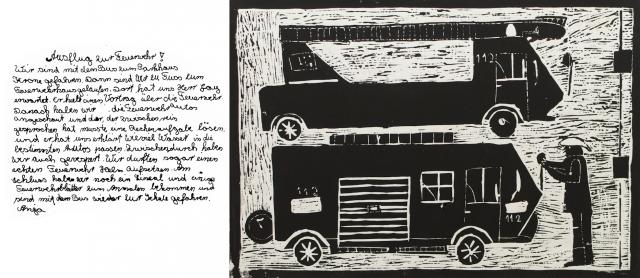 Ausflug zur Feuerwehr
Wir sind mit dem Bus zum Parkhaus
Krone gefahren. Dann sind wir zu Fuss zum
Feuerwehrhaus gelaufen. Dort hat uns Herr
erwartet. Er hielt einen Vortrag über die Feuerwehr
Danach haben wir die Feuerwehrautos
angeschaut und der, der zwischenrein
gesprochen hat musste eine Rechenaufgabe lösen,
und er hat uns erklärt wieviel Wasser in die
bestimmten Autos passen. Zwischendurch haben
wir auch gevespert. Wir durften sogar einen
echten Feuerwehr Helm aufsetzen. Am
schluss haben wir noch ein Lineal und einige
Feuerwehrblätter zum Anmalen bekommen und
sind mit dem Bus wieder zur Schule gefahren.
112
112
112